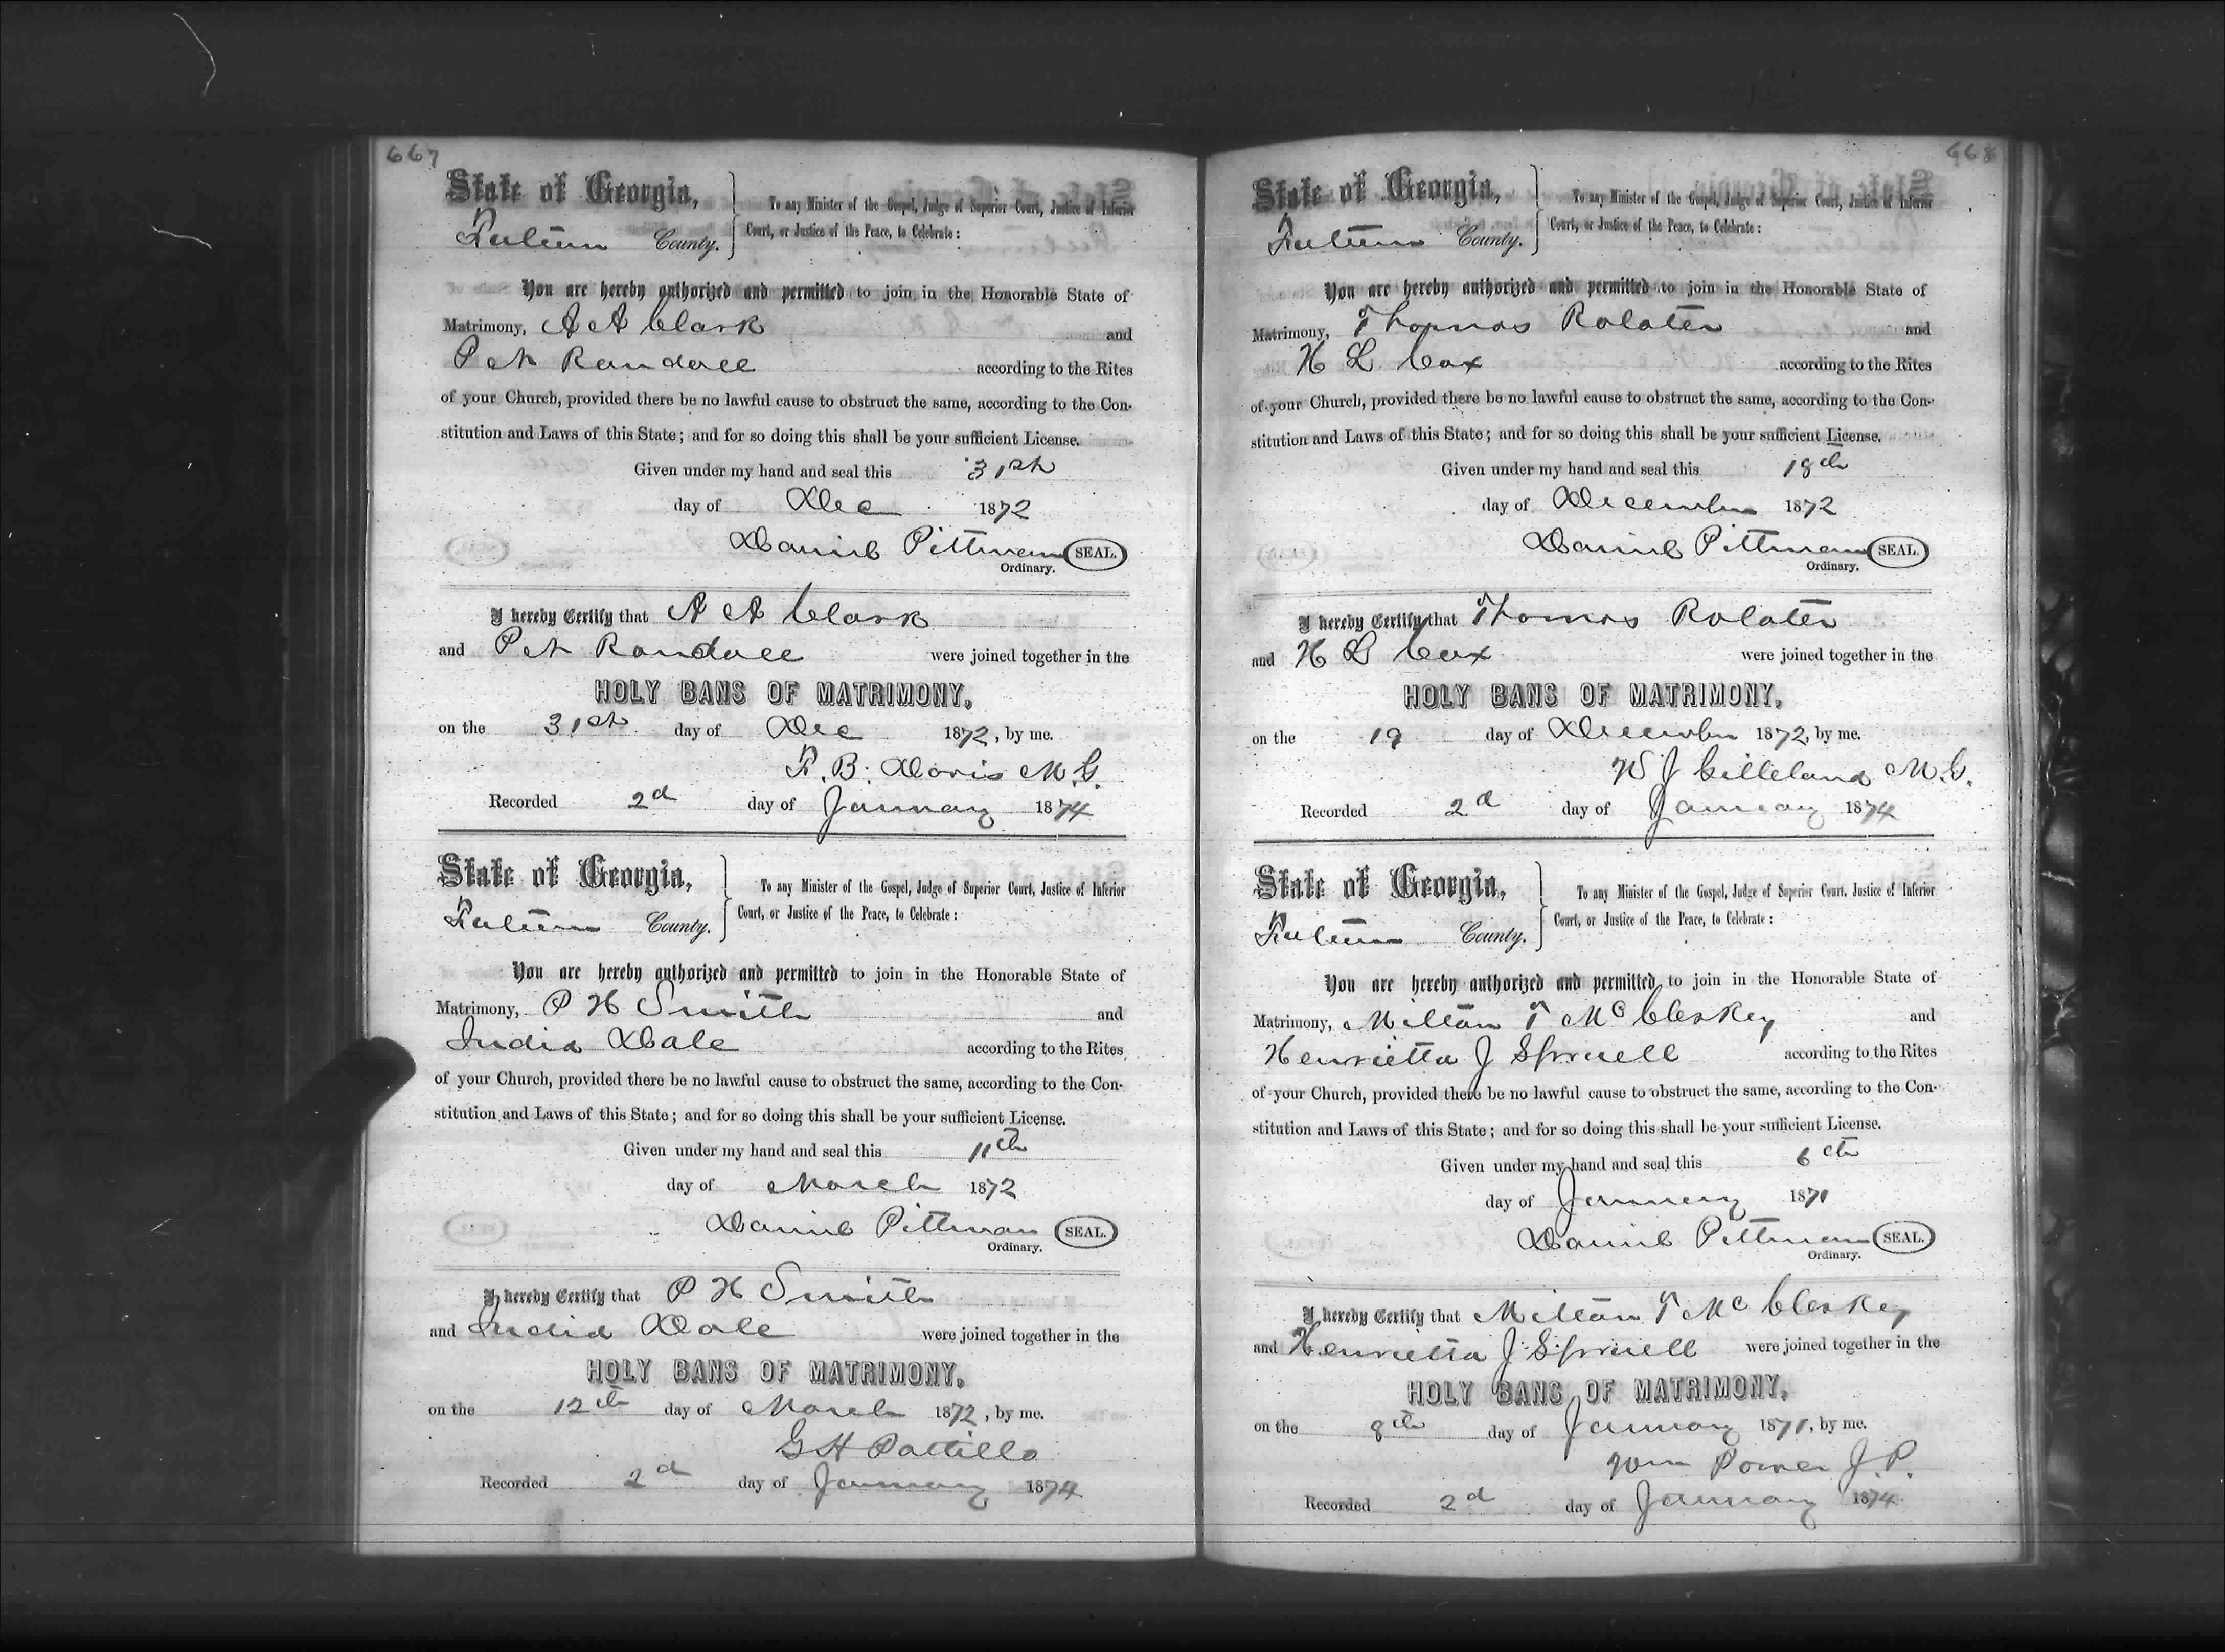 667
State of Georgia,
To any Minister of the Gospel, Judge of Superior Court, Justice of Inferior
Fulton County.
Court, or Justice of the Peace, to Celebrate:
You are hereby authorized and permitted to join in the Honorable State of
Matrimony, A A Clark and
Pet Randall according to the Rites
of your Church, provided there be no lawful cause to obstruct the same, according to the Con-
stitution and Laws of this State; and for so doing this shall be your sufficient License.
Given under my hand and seal this 31st
day of Dec 1872
Daniel Pittman SEAL.
Ordinary.
I hereby Certify that A A Clark
and Pet Randall were joined together in the
HOLY BANS OF MATRIMONY,
on the 31st day of Dec 1872, by me.
F. B. Davis M.G.
Recorded 2d day of January 1874
State of Georgia,
To any Minister of the Gospel, Judge of Superior Court, Justice of Inferior
Fulton County.
Court, or Justice of the Peace, to Celebrate:
You are hereby authorized and permitted to join in the Honorable State of
Matrimony, P H Smith and
India Dale according to the Rites
of your Church, provided there be no lawful cause to obstruct the same, according to the Con-
stitution and Laws of this State; and for so doing this shall be your sufficient License.
Given under my hand and seal this 11th
day of March 1872
Daniel Pittman SEAL.
Ordinary.
I hereby Certify that P H Smith
and India Dale were joined together in the
HOLY BANS OF MATRIMONY,
on the 12th day of March 1872, by me.
G H Pattillo
Recorded 2d day of January 1874
668
State of Georgia,
To any Minister of the Gospel, Judge of Superior Court, Justice of Inferior
Fulton County.
Court, or Justice of the Peace, to Celebrate:
You are hereby authorized and permitted to join in the Honorable State of
Matrimony, Thomas Rolater and
H L Cox according to the Rites
of your Church, provided there be no lawful cause to obstruct the same, according to the Con-
stitution and Laws of this State; and for so doing this shall be your sufficient License.
Given under my hand and seal this 18th
day of December 1872
Daniel Pittman SEAL.
Ordinary.
I hereby Certify that Thomas Rolater
and H L Cox were joined together in the
HOLY BANS OF MATRIMONY,
on the 19 day of December 1872, by me.
W J Gilleland M.G.
Recorded 2d day of January 1874
State of Georgia,
To any Minister of the Gospel, Judge of Superior Court. Justice of Inferior
Fulton County.
Court, or Justice of the Peace, to Celebrate:
You are hereby authorized and permitted to join in the Honorable State of
Matrimony, Milton T McCleskey and
Henrietta J Spruell according to the Rites
of your Church, provided there be no lawful cause to obstruct the same, according to the Con-
stitution and Laws of this State; and for so doing this shall be your sufficient License.
Given under my hand and seal this 6th
day of January 1871
Daniel Pittman SEAL.
Ordinary.
I hereby Certify that Milton T McCleskey
and Henrietta J Spruell were joined together in the
HOLY BANS OF MATRIMONY,
on the 8th day of January 1871, by me.
Wm Power J.P.
Recorded 2d day of January 1874